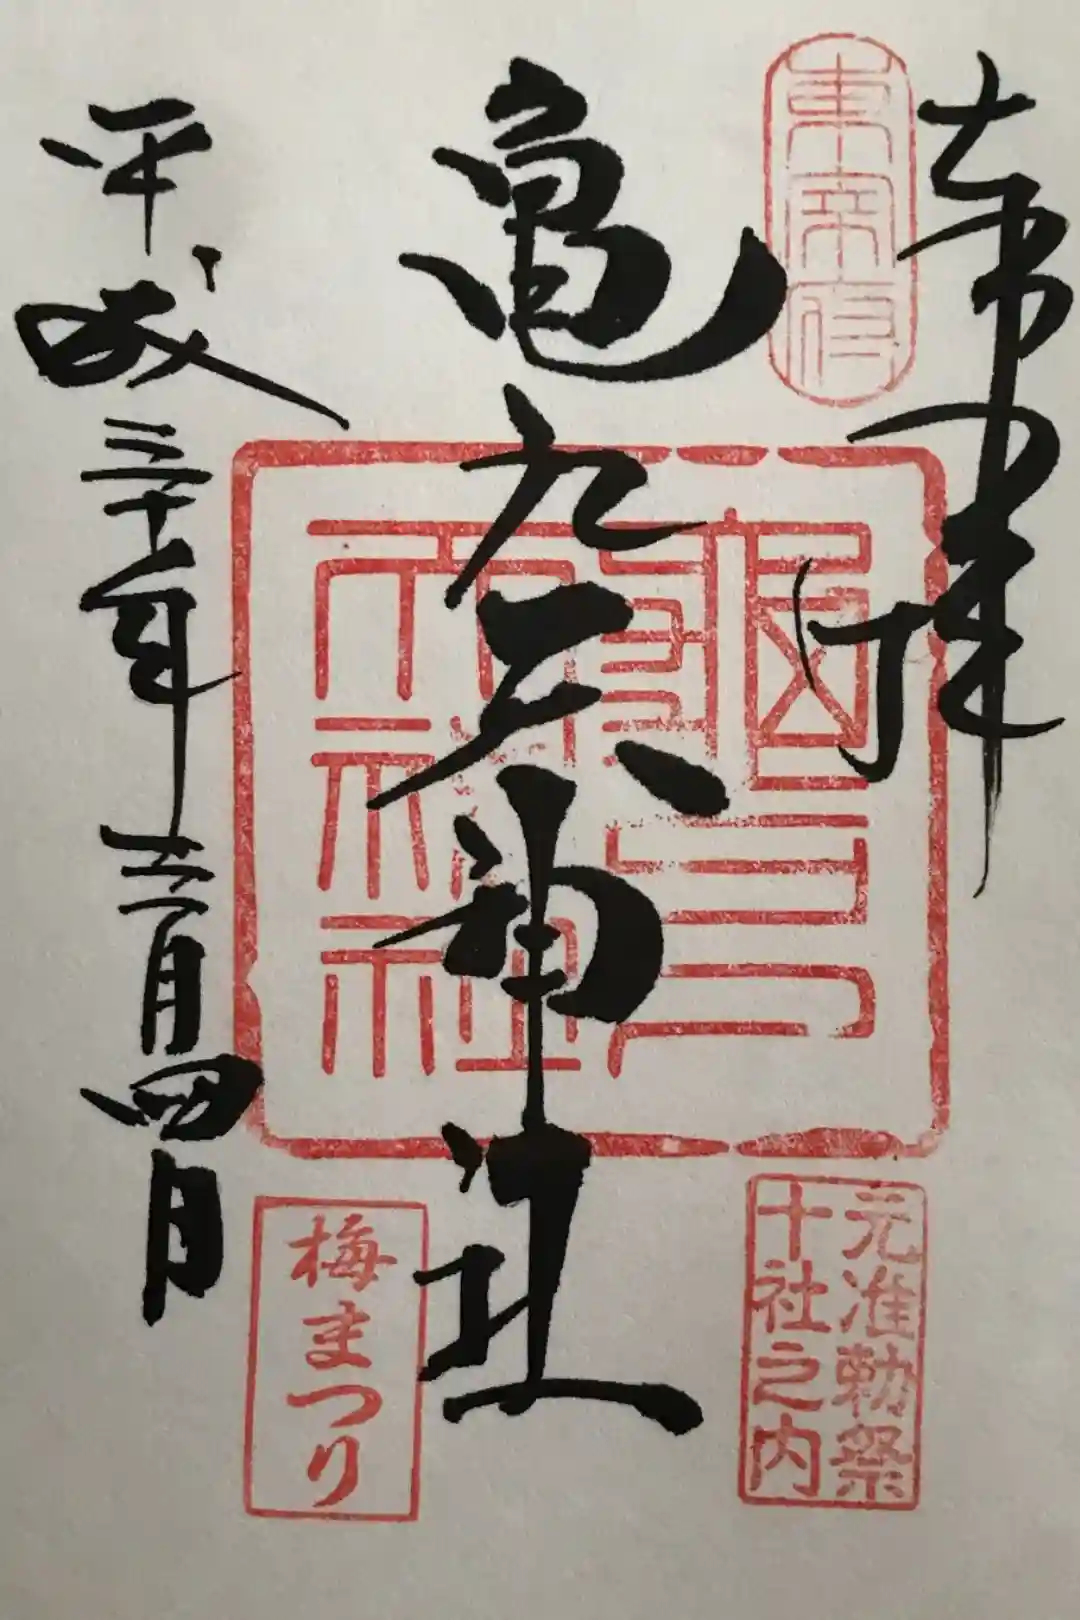 奉拝
東宰府
亀戸天神社
元准勅祭
十社之内
平成三十年三月四日
梅まつり